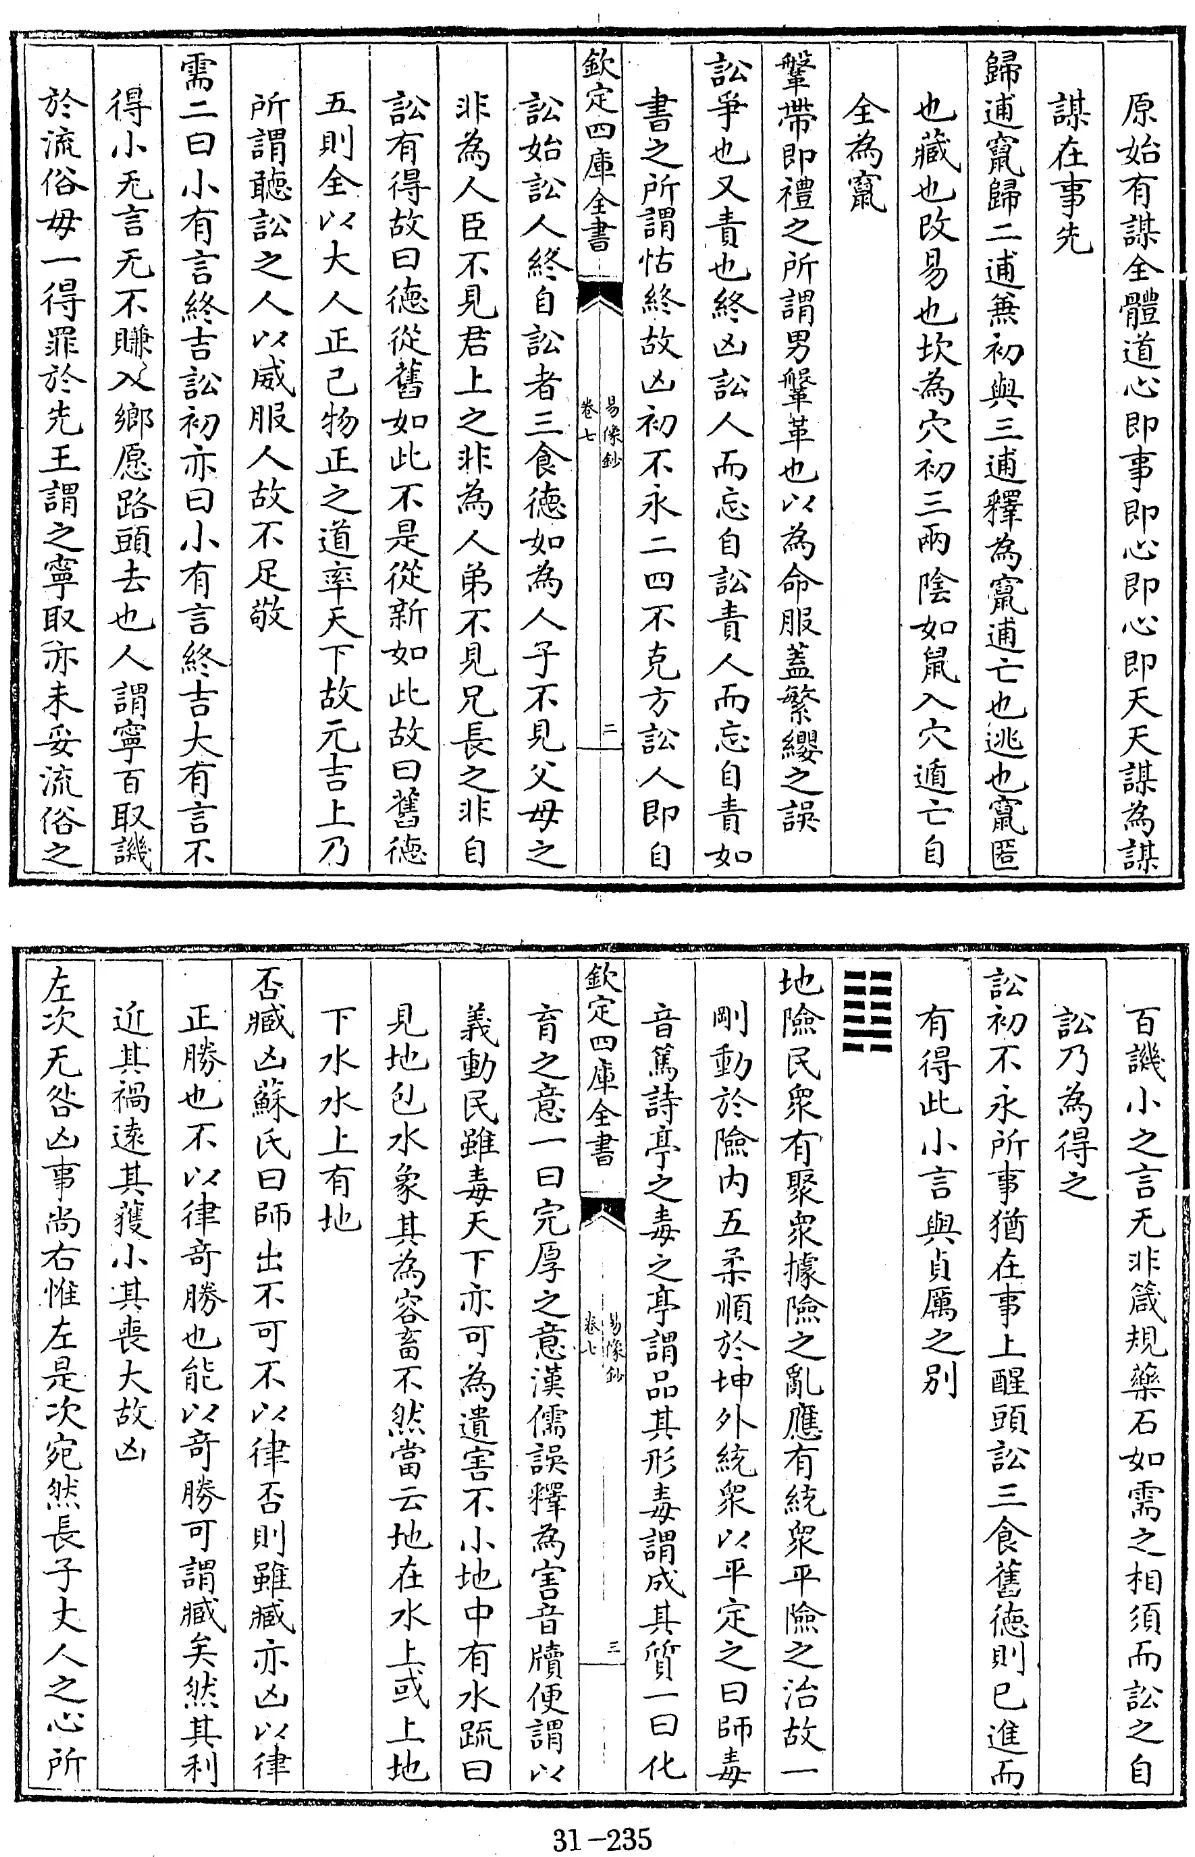 原始有謀全體道心即事即心即心即天天謀為謀
謀在事先
歸逋竄歸二逋無初與三逋釋為竄逋亡也逃也竄匿
也藏也改易也坎為穴初三兩陰如鼠入穴遁亡自
全為竄
鞶帶即禮之所謂男鞶革也以為命服蓋繁纓之誤
訟爭也又責也終凶訟人而忘自訟責人而忘自責如
書之所謂怙終故凶初不永二四不克方訟人即自
欽定四庫全書
易像鈔
卷七
二
訟始訟人終自訟者三食德如為人子不見父母之
非為人臣不見君上之非為人弟不見兄長之非自
訟有得故曰德從舊如此不是從新如此故曰舊德
五則全以大人正己物正之道率天下故元吉上乃
所謂聽訟之人以威服人故不足敬
需二曰小有言終吉訟初亦曰小有言終吉大有言不
得小无言无不賺入鄉愿路頭去也人謂寧百取譏
於流俗毋一得罪於先王謂之寧取亦未妥流俗之
百譏小之言无非箴規藥石如需之相須而訟之自
訟乃為得之
訟初不永所事猶在事上醒頭訟三食舊德則已進而
有得此小言與貞厲之別
䷆
地險民衆有聚衆據險之亂應有統衆平險之治故一
剛動於險內五柔順於坤外統衆以平定之曰師毒
音篤詩亭之毒之亭謂品其形毒謂成其質一曰化
欽定四庫全書
易像鈔
卷七
三
育之意一曰完厚之意漢儒誤釋為害音牘便謂以
義動民雖毒天下亦可為遺害不小地中有水䟽曰
見地包水象其為容畜不然當云地在水上或上地
下水水上有地
否臧凶蘇氏曰師出不可不以律否則雖臧亦凶以律
正勝也不以律奇勝也能以奇勝可謂臧矣然其利
近其禍遠其獲小其喪大故凶
左次无咎凶事尚右惟左是次宛然長子丈人之心所
31-235